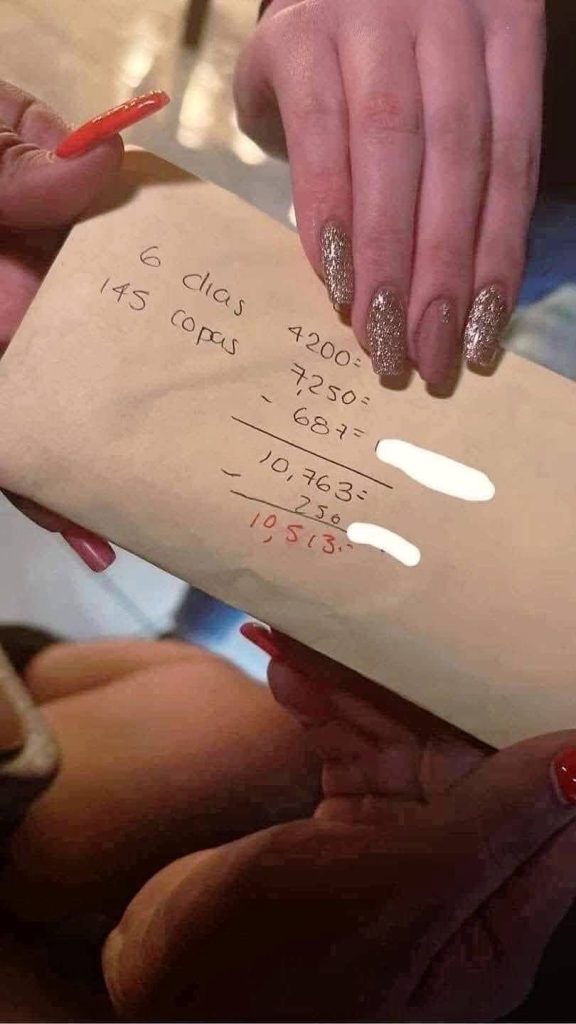 6 dias
145 copas
4200=
7,250=
- 687=
10,763=
- 250
10,513.-